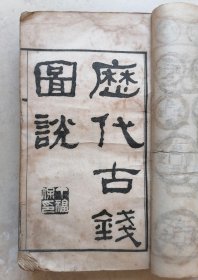 歷代古錢
圖說